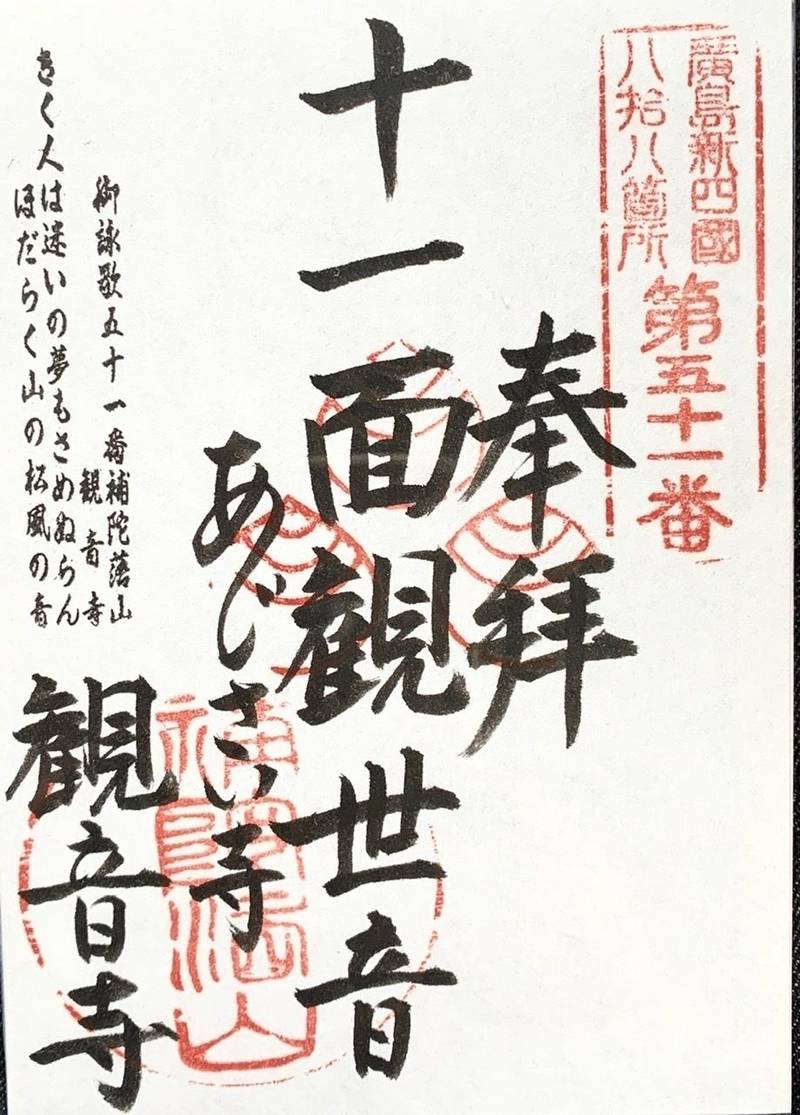 廣島新四國
八拾八箇所
第五十一番
奉拝
十一面観世音
あじさい寺
観音寺
補陀落山
御詠歌五十一番補陀落山
観音寺
きく人は迷いの夢もさめぬらん
ほだらく山の松風の音